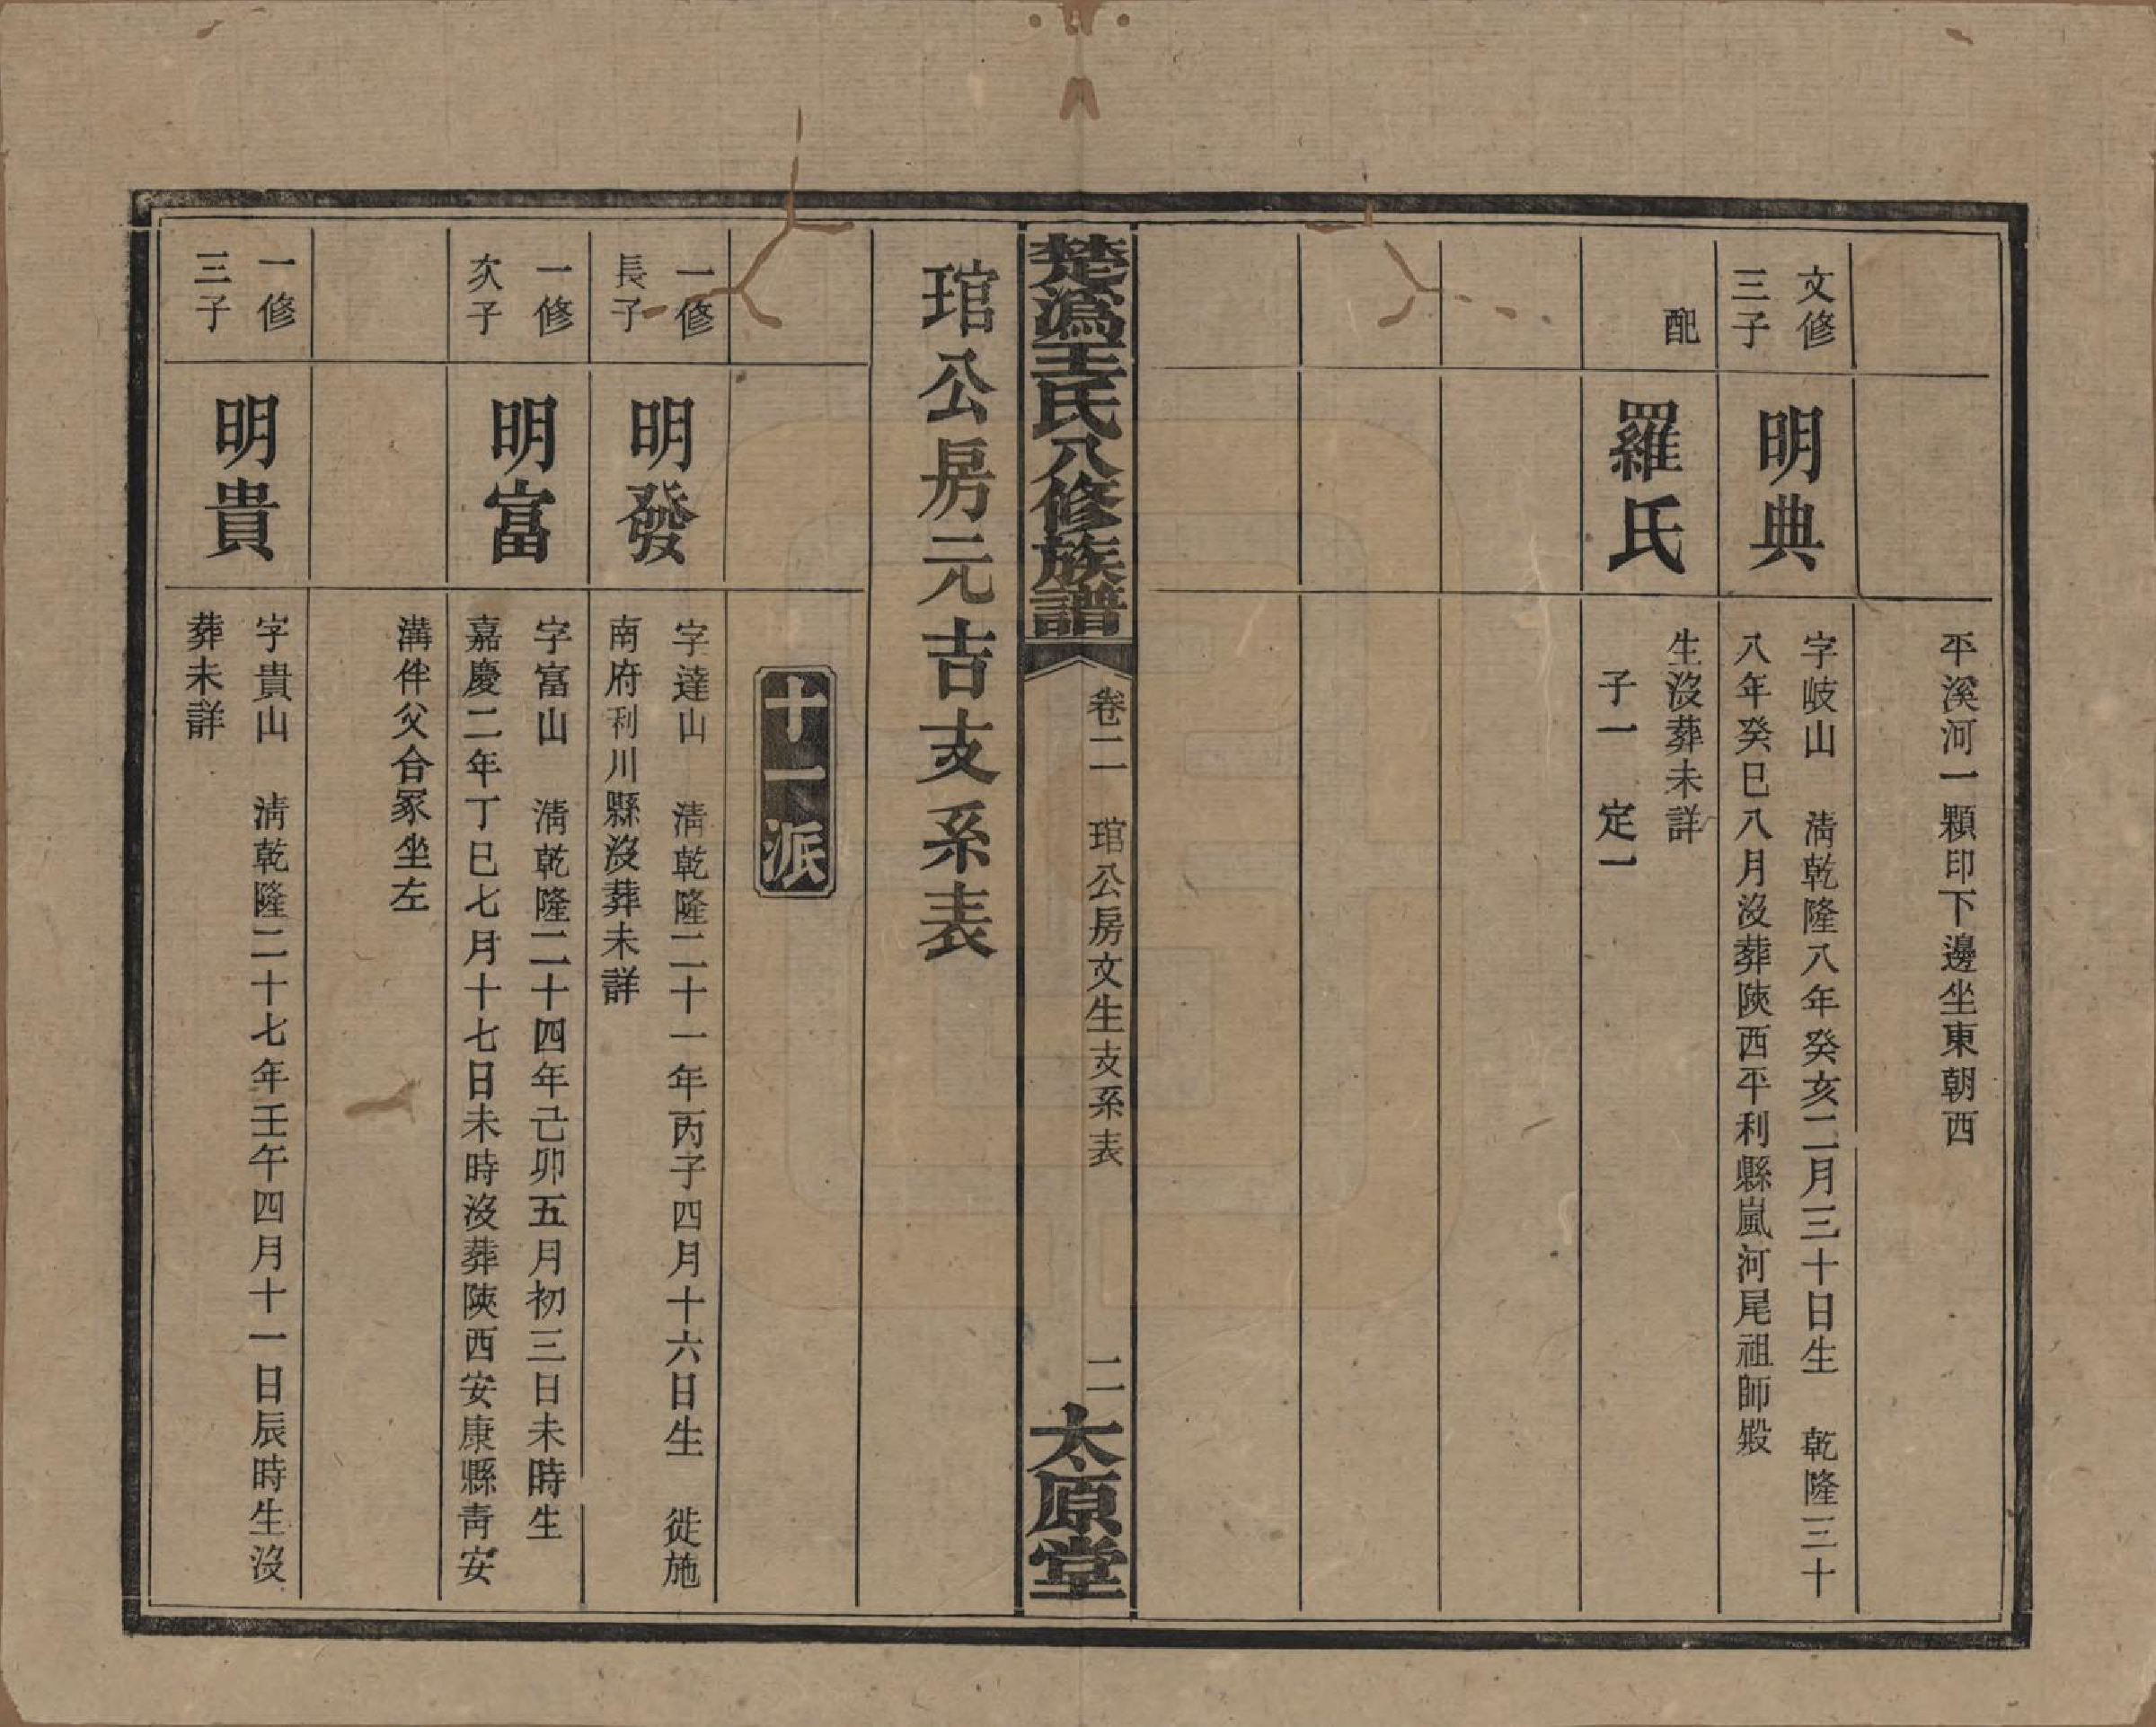 平溪河一顆印下邊坐東朝西
文修
三子
明典
字岐山　淸乾隆八年癸亥二月三十日生　乾隆三十
八年癸巳八月沒葬陝西平利縣嵐河尾祖師殿
配
羅氏
生沒葬未詳
子一　定一
楚溈王氏八修族譜
卷二　琯公房文生支系表
二
太原堂
琯公房元吉支系表
十一派
一修
長子
明發
字達山　淸乾隆二十一年丙子四月十六日生　徙施
南府利川縣沒葬未詳
一修
次子
明富
字富山　淸乾隆二十四年己卯五月初三日未時生
嘉慶二年丁巳七月十七日未時沒葬陝西安康縣靑安
溝伴父合冢坐左
一修
三子
明貴
字貴山　淸乾隆二十七年壬午四月十一日辰時生沒
葬未詳